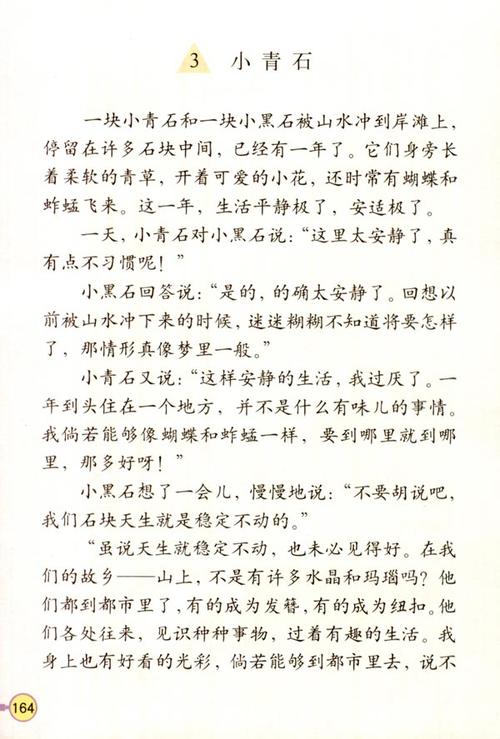 3 小青石
一块小青石和一块小黑石被山水冲到岸滩上，
停留在许多石块中间，已经有一年了。它们身旁长
着柔软的青草，开着可爱的小花，还时常有蝴蝶和
蚱蜢飞来。这一年，生活平静极了，安适极了。
一天，小青石对小黑石说：“这里太安静了，真
有点不习惯呢！”
小黑石回答说：“是的，的确太安静了。回想以
前被山水冲下来的时候，迷迷糊糊不知道将要怎样
了，那情形真像梦里一般。”
小青石又说：“这样安静的生活，我过厌了。一
年到头住在一个地方，并不是什么有味儿的事情。
我倘若能够像蝴蝶和蚱蜢一样，要到哪里就到哪
里，那多好呀！”
小黑石想了一会儿，慢慢地说：“不要胡说吧，
我们石块天生就是稳定不动的。”
“虽说天生就稳定不动，也未必见得好。在我
们的故乡——山上，不是有许多水晶和玛瑙吗？他
们都到都市里了，有的成为发簪，有的成为纽扣。他
们各处往来，见识种种事物，过着有趣的生活。我
身上也有好看的光彩，倘若能够到都市里去，说不
164